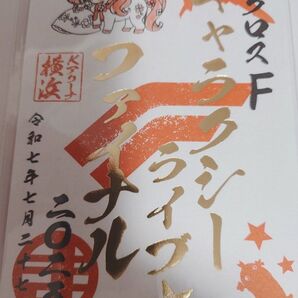 クロスF
ギャラクシー
ライブ☆
ファイナル
二〇二
Kアリーナ
横浜
令和七年七月二十七